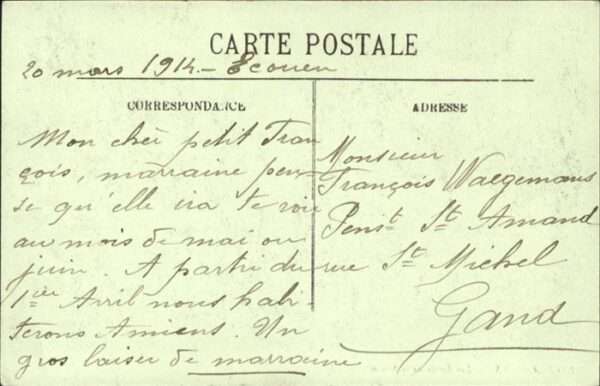 CARTE POSTALE
20 mars 1914 - Ecouen
CORRESPONDANCE
Mon cher petit Fran
çois, marraine pen-
se qu'elle ira te voir
au mois de mai ou
juin. A partir du
1ier Avril nous habi-
terons Amiens. Un
gros baiser de marraine
ADRESSE
Monsieur
François Waegemans
Penst St Amand
rue St Michel
Gand